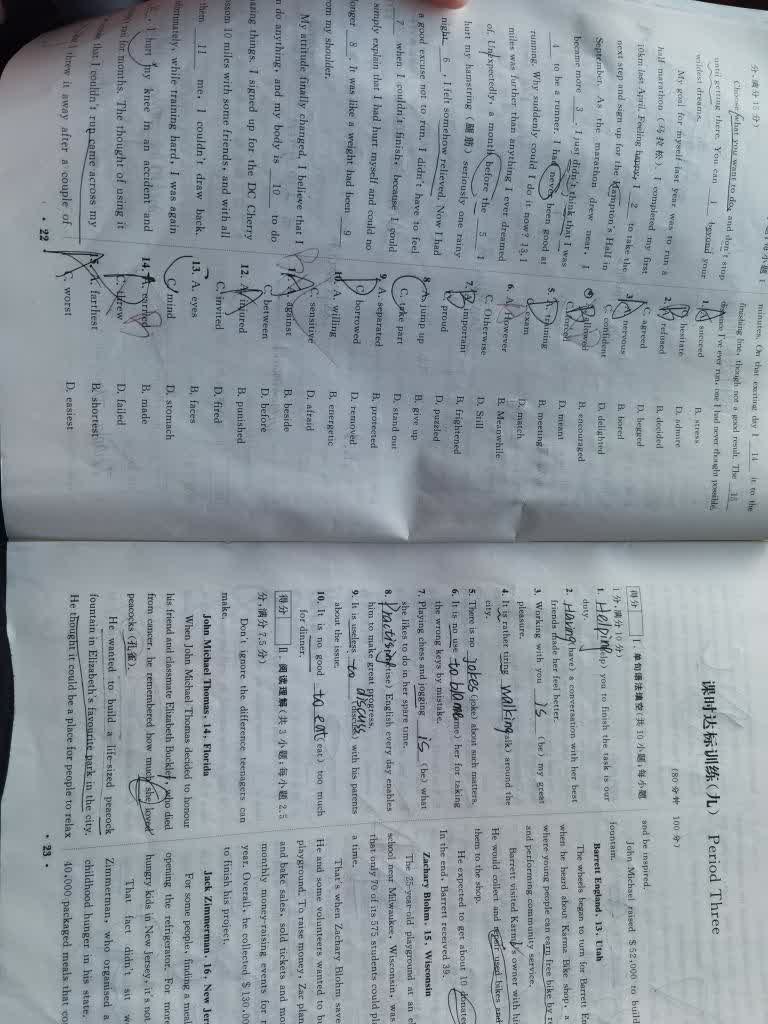 分,满分15分)
Choose what you want to do, and don't stop
until getting there. You can 1 beyond your
wildest dreams.
My goal for myself last year was to run a
half marathon (马拉松). I completed my first
10km last April. Feeling happy, I 2 to take the
next step and sign up for the Hampton's Half in
September. As the marathon drew near, I
became more 3. I just didn't think that I was
4 to be a runner. I had never been good at
running. Why suddenly could I do it now? 13.1
miles was further than anything I ever dreamed
of. Unexpectedly, a month before the 5 I
hurt my hamstring (腿筋) seriously one rainy
night. 6, I felt somehow relieved. Now I had
a good excuse not to run. I didn't have to feel
7 when I couldn't finish, because I could
simply explain that I had hurt myself and could no
longer 8. It was like a weight had been 9
from my shoulder.
My attitude finally changed. I believe that I
do anything, and my body is 10 to do
azing things. I signed up for the DC Cherry
ossom 10 miles with some friends, and with all
them 11 me, I couldn't draw back.
fortunately, while training hard, I was again
I hurt my knee in an accident and
for months. The thought of using it
that I couldn't run came across my
I threw it away after a couple of
• 22
minutes. On that exciting day I 14 it to the
finishing line, though not a good result. The 15
distance I've ever run, one I had never thought possible.
1. A. succeed B. stress
C. hesitate D. admire
2. A. refused B. decided
C. agreed D. begged
3. A. nervous B. bored
C. confident D. delighted
4. A. allowed B. encouraged
C. forced D. meant
5. A. training B. meeting
C. exam D. match
6. A. However B. Meanwhile
C. Otherwise D. Still
7. A. important B. frightened
C. proud D. puzzled
8. A. jump up B. give up
C. take part D. stand out
9. A. separated B. protected
C. borrowed D. removed
10. A. willing B. energetic
C. sensitive D. afraid
11. A. against B. beside
C. between D. before
12. A. injured B. punished
C. invited D. fired
13. A. eyes B. faces
C. mind D. stomach
14. A. turned B. made
C. threw D. failed
15. A. farthest B. shortest
C. worst D. easiest
课时达标训练(九) Period Three
(80分钟 100分)
得分 Ⅰ. 单句语法填空(共10小题;每小题
1分,满分10分)
1. Helping you to finish the task is our
duty.
2. Having (have) a conversation with her best
friends made her feel better.
3. Working with you is (be) my great
pleasure.
4. It is rather tiring walking around the
city.
5. There is no jokes (joke) about such matters.
6. It is no use to blame her for taking
the wrong keys by mistake.
7. Playing chess and jogging is (be) what
she likes to do in her spare time.
8. Practising English every day enables
him to make great progress.
9. It is useless to discuss with his parents
about the issue.
10. It is no good to eat (eat) too much
for dinner.
得分 Ⅱ. 阅读理解(共3小题;每小题2.5
分,满分7.5分)
Don't ignore the difference teenagers can
make.
John Michael Thomas, 14, Florida
When John Michael Thomas decided to honour
his friend and classmate Elizabeth Buckley who died
from cancer, he remembered how much she loved
peacocks (孔雀).
He wanted to build a life-sized peacock
fountain in Elizabeth's favourite park in the city.
He thought it could be a place for people to relax
• 23 •
and be inspired.
John Michael raised $52,000 to build
fountain.
Barrett England, 13, Utah
The wheels began to turn for Barrett En
when he heard about Karma Bike shop, a
where young people can earn free bike by re
and performing community service.
Barrett visited Karma's owner with his
He would collect and repair used bikes and
them to the shop.
He expected to get about 10 donated
In the end, Barrett received 39.
Zachary Blohm, 15, Wisconsin
The 25-year-old playground at an el
school near Milwaukee, Wisconsin, was
that only 70 of its 575 students could pl
a time.
That's when Zachary Blohm save
He and some volunteers wanted to b
playground. To raise money, Zac plan
and bake sales, sold tickets and mo
monthly money-raising events for n
year. Overall, he collected $130,00
to finish his project.
Jack Zimmerman, 16, New Jer
For some people, finding a meal
opening the refrigerator. For more
hungry kids in New Jersey, it's not
That fact didn't sit w
Zimmerman, who organised a
childhood hunger in his state.
40,000 packaged meals that co